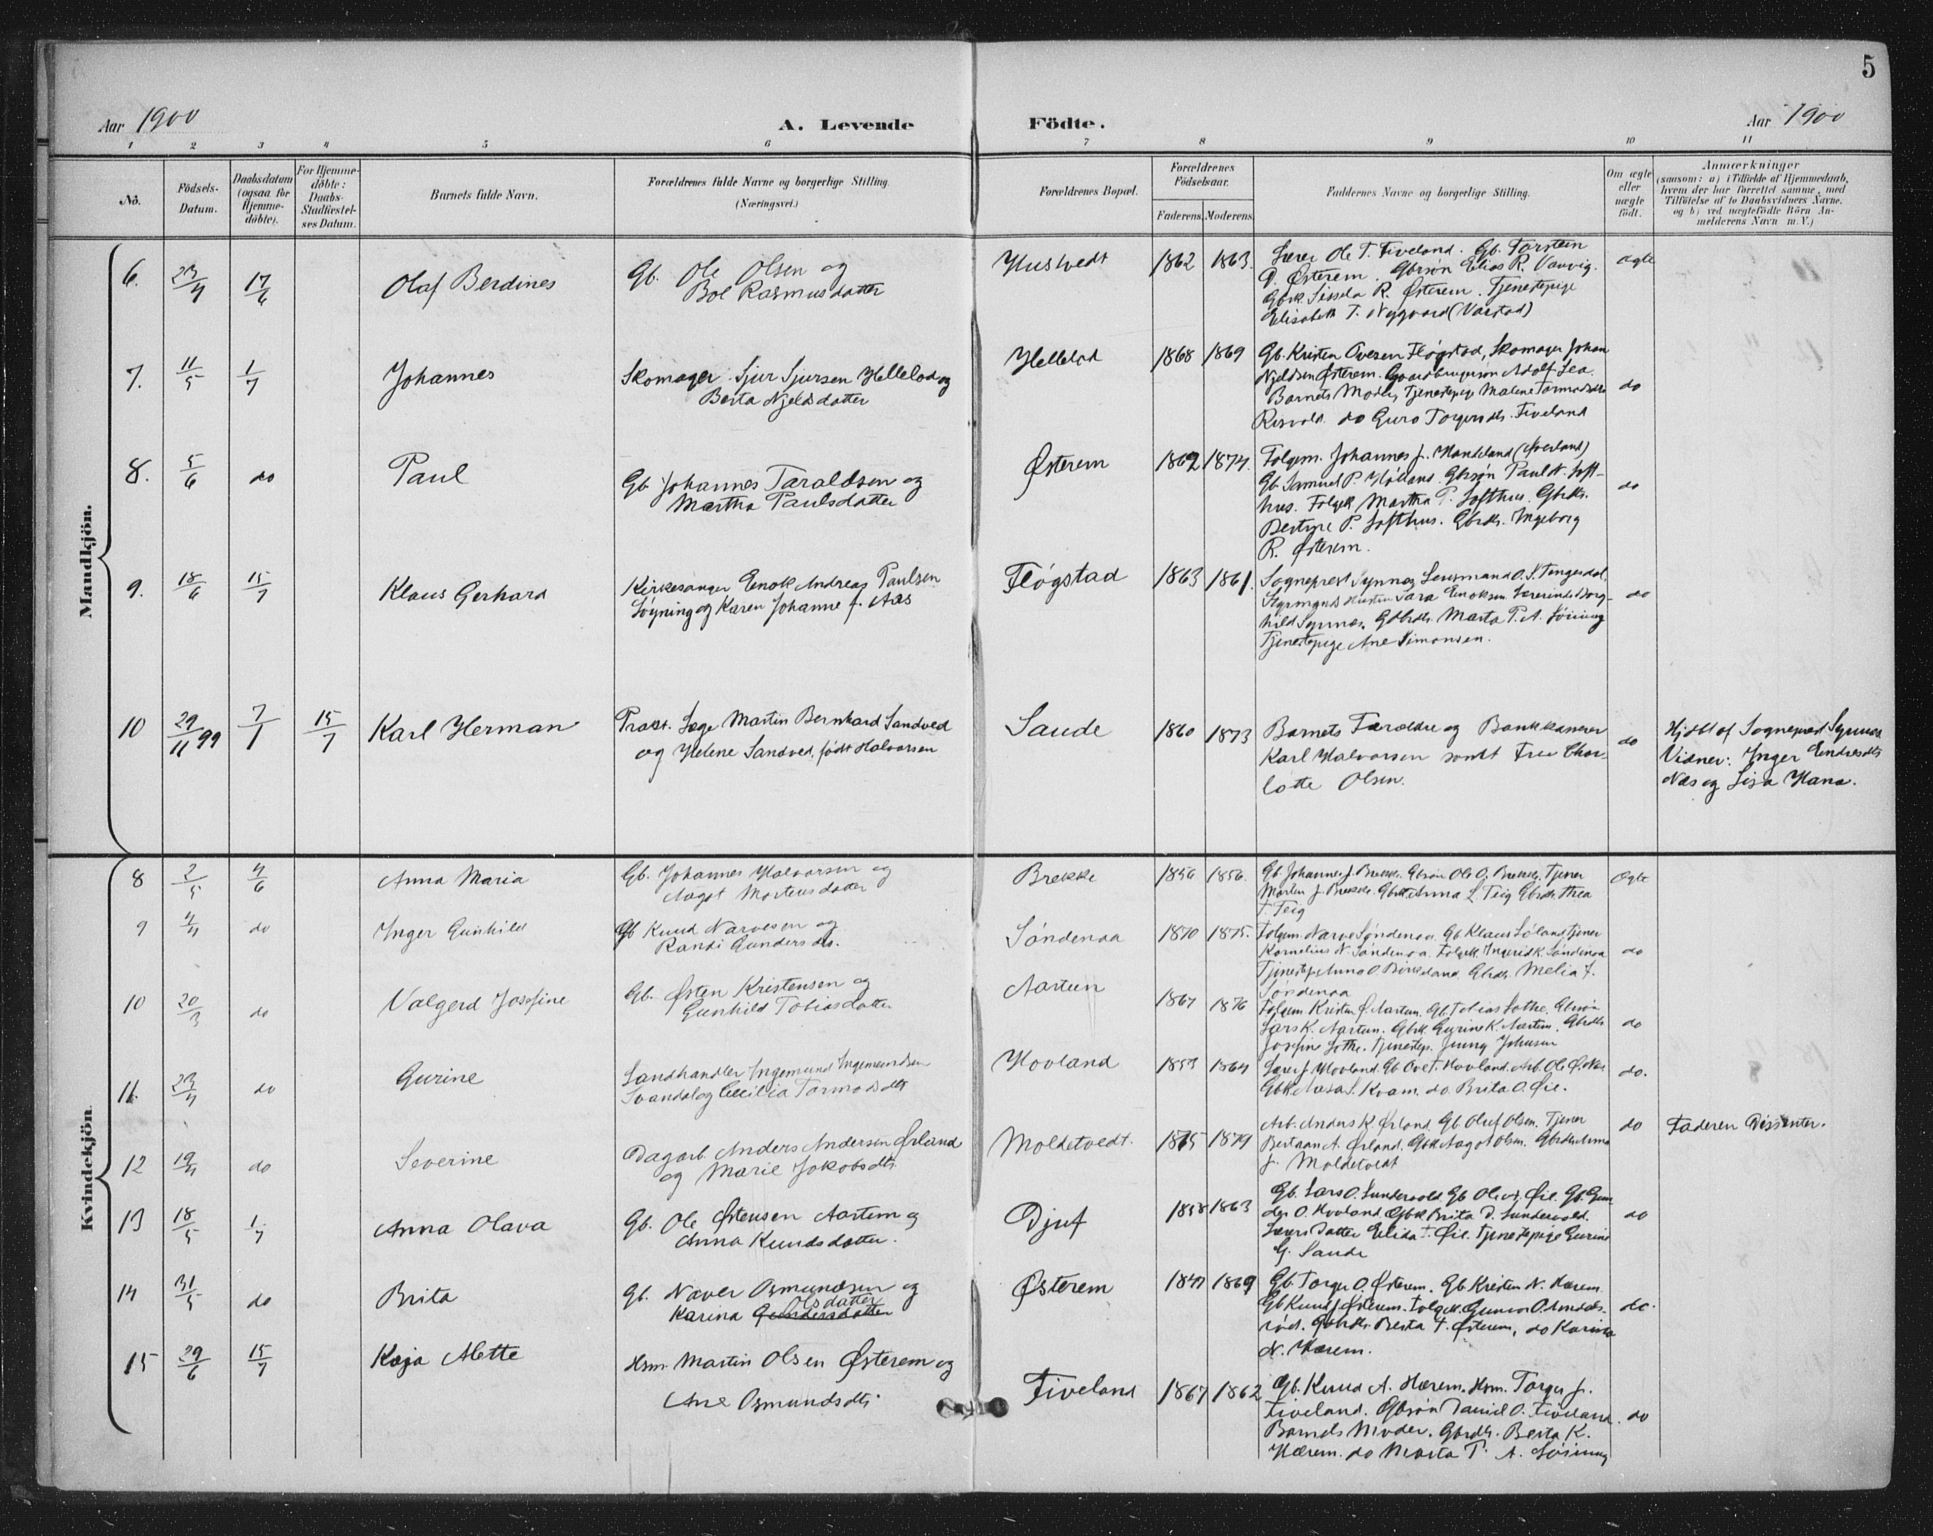 5
Aar 1900
A. Levende Födte.
Aar 1900
1 2 3 4 5 6 7 8 9 10 11
No.
Födsels-
Datum.
Daabsdatum
(ogsaa for
Hjemme-
döbte).
For Hjemme-
döbte:
Daabs-
Stadfæstel-
ses Datum.
Barnets fulde Navn.
Forældrenes fulde Navne og borgerlige Stilling.
(Næringsvei.)
Forældrenes Bopæl.
Forældrenes
Födselsaar.
Faderens. Moderens.
Faddernes Navne og borgerlige Stilling.
Om ægte
eller
uægte
födt.
Anmærkninger
(saasom: a) i Tilfælde af Hjemmedaab,
hvem der har forrettet samme, med
Tilföielse af to Daabsvidners Navne,
og b) ved uægtefödte Börn An-
melderens Navn m. V.)
Mandkjön.
6. 23/4 17/6 Olaf Berdines
Gb. Ole Olsen og
Bol Rasmusdatter
Hustvedt 1862 1863.
Lærer Ole T. Fiveland. Gb. Torstein
D. Østerem. Gbrsøn Elias R. Vannvig.
Gbrk Sissela R. Østerem. Tjenestepige
Elisabeth T. Nygaard (Vastad)
ægte
7. 11/5 1/7 Johannes
Skomager Sjur Sjursen Hellelod og
Berta Njelsdatter
Hellelod 1868 1869
Gb. Kristen Ovesen Fløgstad, Skomager Johan
Njeldsen Østerem. Gaardbrugersøn Adolf Lea.
Barnets Moder, Tjenestepige Malene Tormodsdtr
Risvold. do Guro Torgersdtr. Fiveland
do
8. 5/6 do Paul
Gb. Johannes Taraldsen og
Martha Paulsdatter
Østerem 1862 1874.
Folgem. Johannes J. Handeland (Øverland)
Gb Samuel P. Hølland. Gbrsøn Paul H. Soft-
hus. Folgek Martha P. Softhus. Gbrdtr.
Bertine P. Softhus. Gbrdtr. Ingeborg
R. Østerem.
do
9. 18/6 15/7 Klaus Gerhard
Kirkesanger Enok Andreas Paulsen
Løgning og Karen Johanne f. Aas
Fløgstad 1863 1861.
Sogneprest Synnes Lensmand O. S. Tengesdal,
Styrmands Hustru Sara Enoksen. Lærerinde Borg-
hild Synnes. Gbrdtr. Marta P. A. Løining
Tjenestepige Ane Simonsen.
do
10 29/11 99 7/1 15/7 Karl Herman
Prakt. Læge Martin Bernhard Sandved
og Helene Sandved, født Halvorsen
Sande 1860 1873
Barnets Forældre og Bankkasserer
Karl Halvorsen samt Frøu Char-
lotte Olsen.
do
Hjdbt af Sogneprest Synnes
Vidner: Inger Endresdtr
Næs og Lisa Hana.
Kvindekjön.
8 2/5 4/6 Anna Maria
Gb. Johannes Halvorsen og
Aagot Mortensdatter
Brekke 1856 1856.
Gb. Johannes J. Brekke. Gbrsøn Ole O. Brekke. Tjener
Morten J. Brekke. Gbrk Anna L. Teig Gbrdtr. Thea
T. Teig
Ægte
9 4/4 do Inger Gunhild
Gb Knud Narvesen og
Randi Gundersdtr.
Søndenaa 1870 1875.
Folgem. Narve Søndenaa. Gb Klaus Løland. Tjener
Kornelius N. Søndenaa. Folgek. Ingerid K. Søndenaa
Tjenestepige Anna O. Birkeland. Gbrdtr. Melia T.
Søndenaa
do
10 20/3 do Valgerd Josefine
Gb. Østen Kristensen og
Gunhild Tobiasdatter
Aartun 1867 1876
Folgem Kristen Ø. Aartun. Gb. Tobias Lothe. Gbrsøn
Lars K. Aartun. Gbrk Gurine K. Aartun. Gbrdtr
Josefine Lothe. Tjenestep. Jenny Johnsen
do
11. 23/4 do Gurine
Landhandler Ingemund Ingemundsen
Svandal og Cecilia Tormodsdtr
Hovland 1853 1864
Lærer J. Hovland. Gb. Ove T. Hovland. Arb. Ole Økst
Gbk. Aasa S. Kvam. do Brita O. Øie.
do.
12 19/4 do Severine
Dagarb. Anders Andersen Ørland
og Marie Jakobsdtr
Moldetvedt. 1875 1879
Arb. Anders K. Ørland. Gb. Oluf Olsen. Tjener
Bertaan A. Ørland. Gbrk Aagot Olsen. Gbrdtr Anna
J. Moldetvedt
do
Faderen Dissenter.
13 18/5 1/7 Anna Olava
Gb. Ole Østensen Aartun og
Anna Knudsdatter.
Djuf 1858 1863
Gb. Lars O. Sundevold. Gb. Ole T. Øie. Gb. Gun-
der O. Hovland. Gbrk Brita D. Sundevold.
Lærers Datter Elida T. Øie. Tjenestepige Gurine
G. Sande
do
14 31/5 do Brita
Gb. Naver Osmundsen og
Karina Olsdatter
Østerem 1847 1869
Gb. Torger O. Østerem. Gb. Kristen N. Hærem.
Gb Knud J. Østerem. Folgek. Gunvor O. Amdals-
rød. Gbrdtr. Berta T. Østerem, do Karine
N. Hærem.
do.
15 29/6 15/7 Kaja Alette
Hsm. Martin Olsen Østerem og
Ane Osmundsdtr.
Fiveland 1867 1862
Gb. Knud A. Hærem. Hsm. Torger J.
Fiveland. Gbrsøn Daniel O. Fiveland.
Barnets Moder. Gbrdtr. Berta K.
Hærem. do Marta P. A. Løining
do